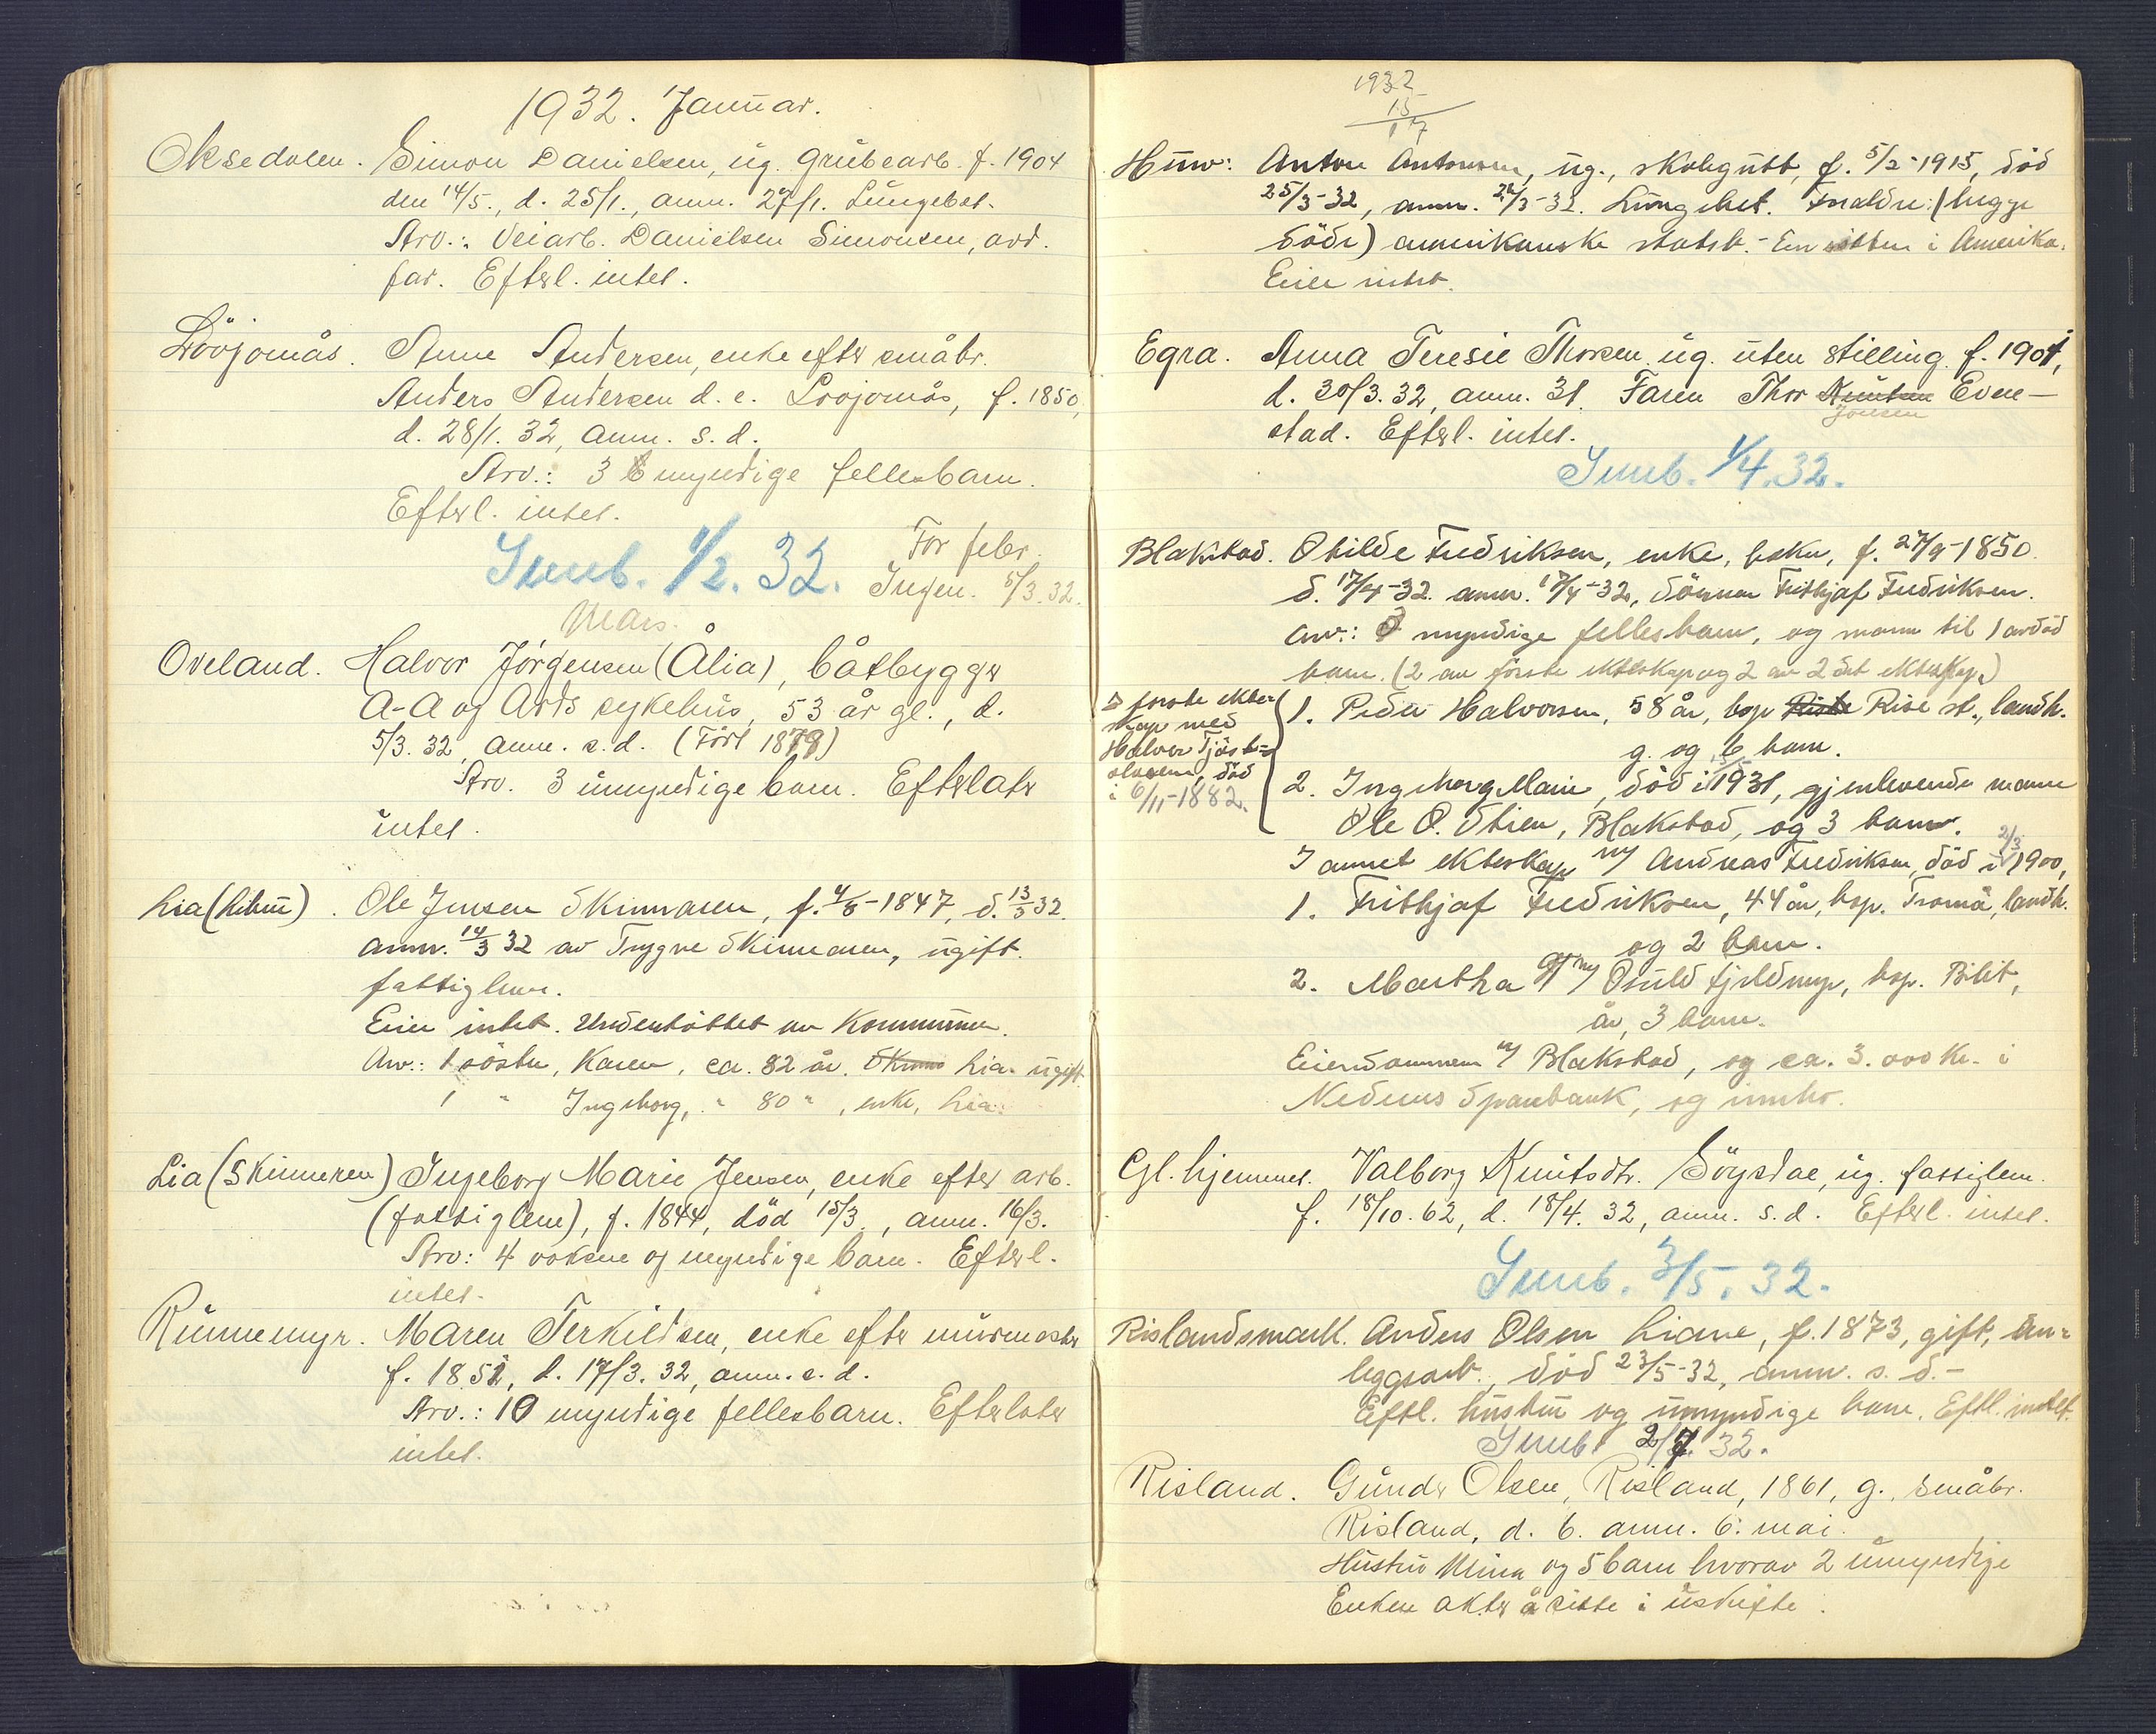 1932. Januar.
Oksedalen. Simon Danielsen, ug. grubearb. f. 1904
den 14/5., d. 25/1., anm. 27/1. Lungebet.
Arv.: Veiarb. Danielsen Simonsen, avd.
far. Efterl. intet.
Lövjomås. Anne Andersen, enke efter småbr.
Anders Andersen d. e. Lovjomås, f. 1850,
d. 28/1. 32, anm. s. d.
Arv.: 3 myndige fellesbarn.
Efterl. intet.
Innb. 1/2. 32.
For febr.
Ingen. 5/3. 32.
Mars.
Oveland. Halvor Jörgensen (Ålia), båtbygger
A-A og Ards sykehus, 53 år gl., d.
5/3. 32, anm. s. d. (Født 1879)
Arv. 3 umyndige barn. Efterlater
intet.
Lia (Libru). Ole Jensen Skinnaren, f. 4/8-1847, d. 13/3 32.
anm. 14/3 32 av Trygve Skinnaren, ugift.
fattiglem.
Eier intet. Understöttet av Kommunen.
Arv.: 1 söster, Karen, ca. 82 år. Lia. ugift.
1 " Ingeborg, " 80 ", enke, Lia.
Lia (Skinneren) Ingeborg Marie Jensen, enke efter arb.
(fattiglem), f. 1844, död 15/3., anm. 16/3.
Arv: 4 voksne og myndige barn. Efterl.
intet.
Runnemyr. Maren Terkildsen, enke efter murmester
f. 1851, d. 17/3. 32, anm. s. d.
Arv.: 10 myndige fellesbarn. Efterlater
intet.
1932
15
17
Huw: Anton Antonsen, ug., skolegutt, f. 5/2-1915, död
25/3-32, anm. 26/3-32. Lungebet. Foreldre: (begge
döde) amerikanske statsb. - En söster i Amerika.
Eier intet.
Egra. Anna Teresie Thorsen ug. uten stilling f. 1901,
d. 30/3. 32, anm. 31. Faren Thor Knutsen Even-
Jonsen
stad. Efterl. intet.
Innb. 1/4. 32.
Blakstad. Otilde Fredriksen, enke, f. 27/9-1850.
d. 17/4-32. anm. 17/4-32, sönnen Frithjof Fredriksen.
Arv.: myndige fellesbarn, og mann til 1 avdöd
barn. (2 av förste ekteskap og 2 av 2det ekteskap.)
förste ekte-
skap med
Halvor Tjöst-
olvsen, död
i 6/11-1882.
1. Peder Halvorsen, 58 år, bop. Riste Rise st., landh.
g. og 6 barn.
2. Ingeborg Marie, död i 1931, gjenlevende mann
Ole O. Stien, Blakstad, og 3 barn.
I annet ekteskap m/ Andreas Fredriksen, död i 2/3 1900,
1. Frithjof Fredriksen, 44 år, bop. Tromö, landh.
og 2 barn.
2. Martha g. m/ Osuld Fjeldmyr, bop. Bibit,
år, 3 barn.
Eiendommen v/ Blakstad, og ca. 3.000 kr. i
Nedenes Sparebank, og innbo.
Gl. hjemmet. Valborg Knutsdtr. Söysdal, ug. fattiglem.
f. 18/10. 62, d. 18/4. 32, anm. s. d. Efterl. intet.
Innb. 3/5. 32.
Rislandsmark. Anders Olsen Liane, f. 1873, gift, an-
leggsarb., död 23/5-32, anm. s. d.-
Eftl. hustru og umyndige barn. Eftl. intet.
Innb. 2/7. 32.
Risland. Gunder Olsen, Risland, 1861, g., småbr.
Risland, d. 6. anm. 6. mai.
Hustru Mina og 5 barn hvorav 2 umyndige
Enken akter å sitte i uskifte.